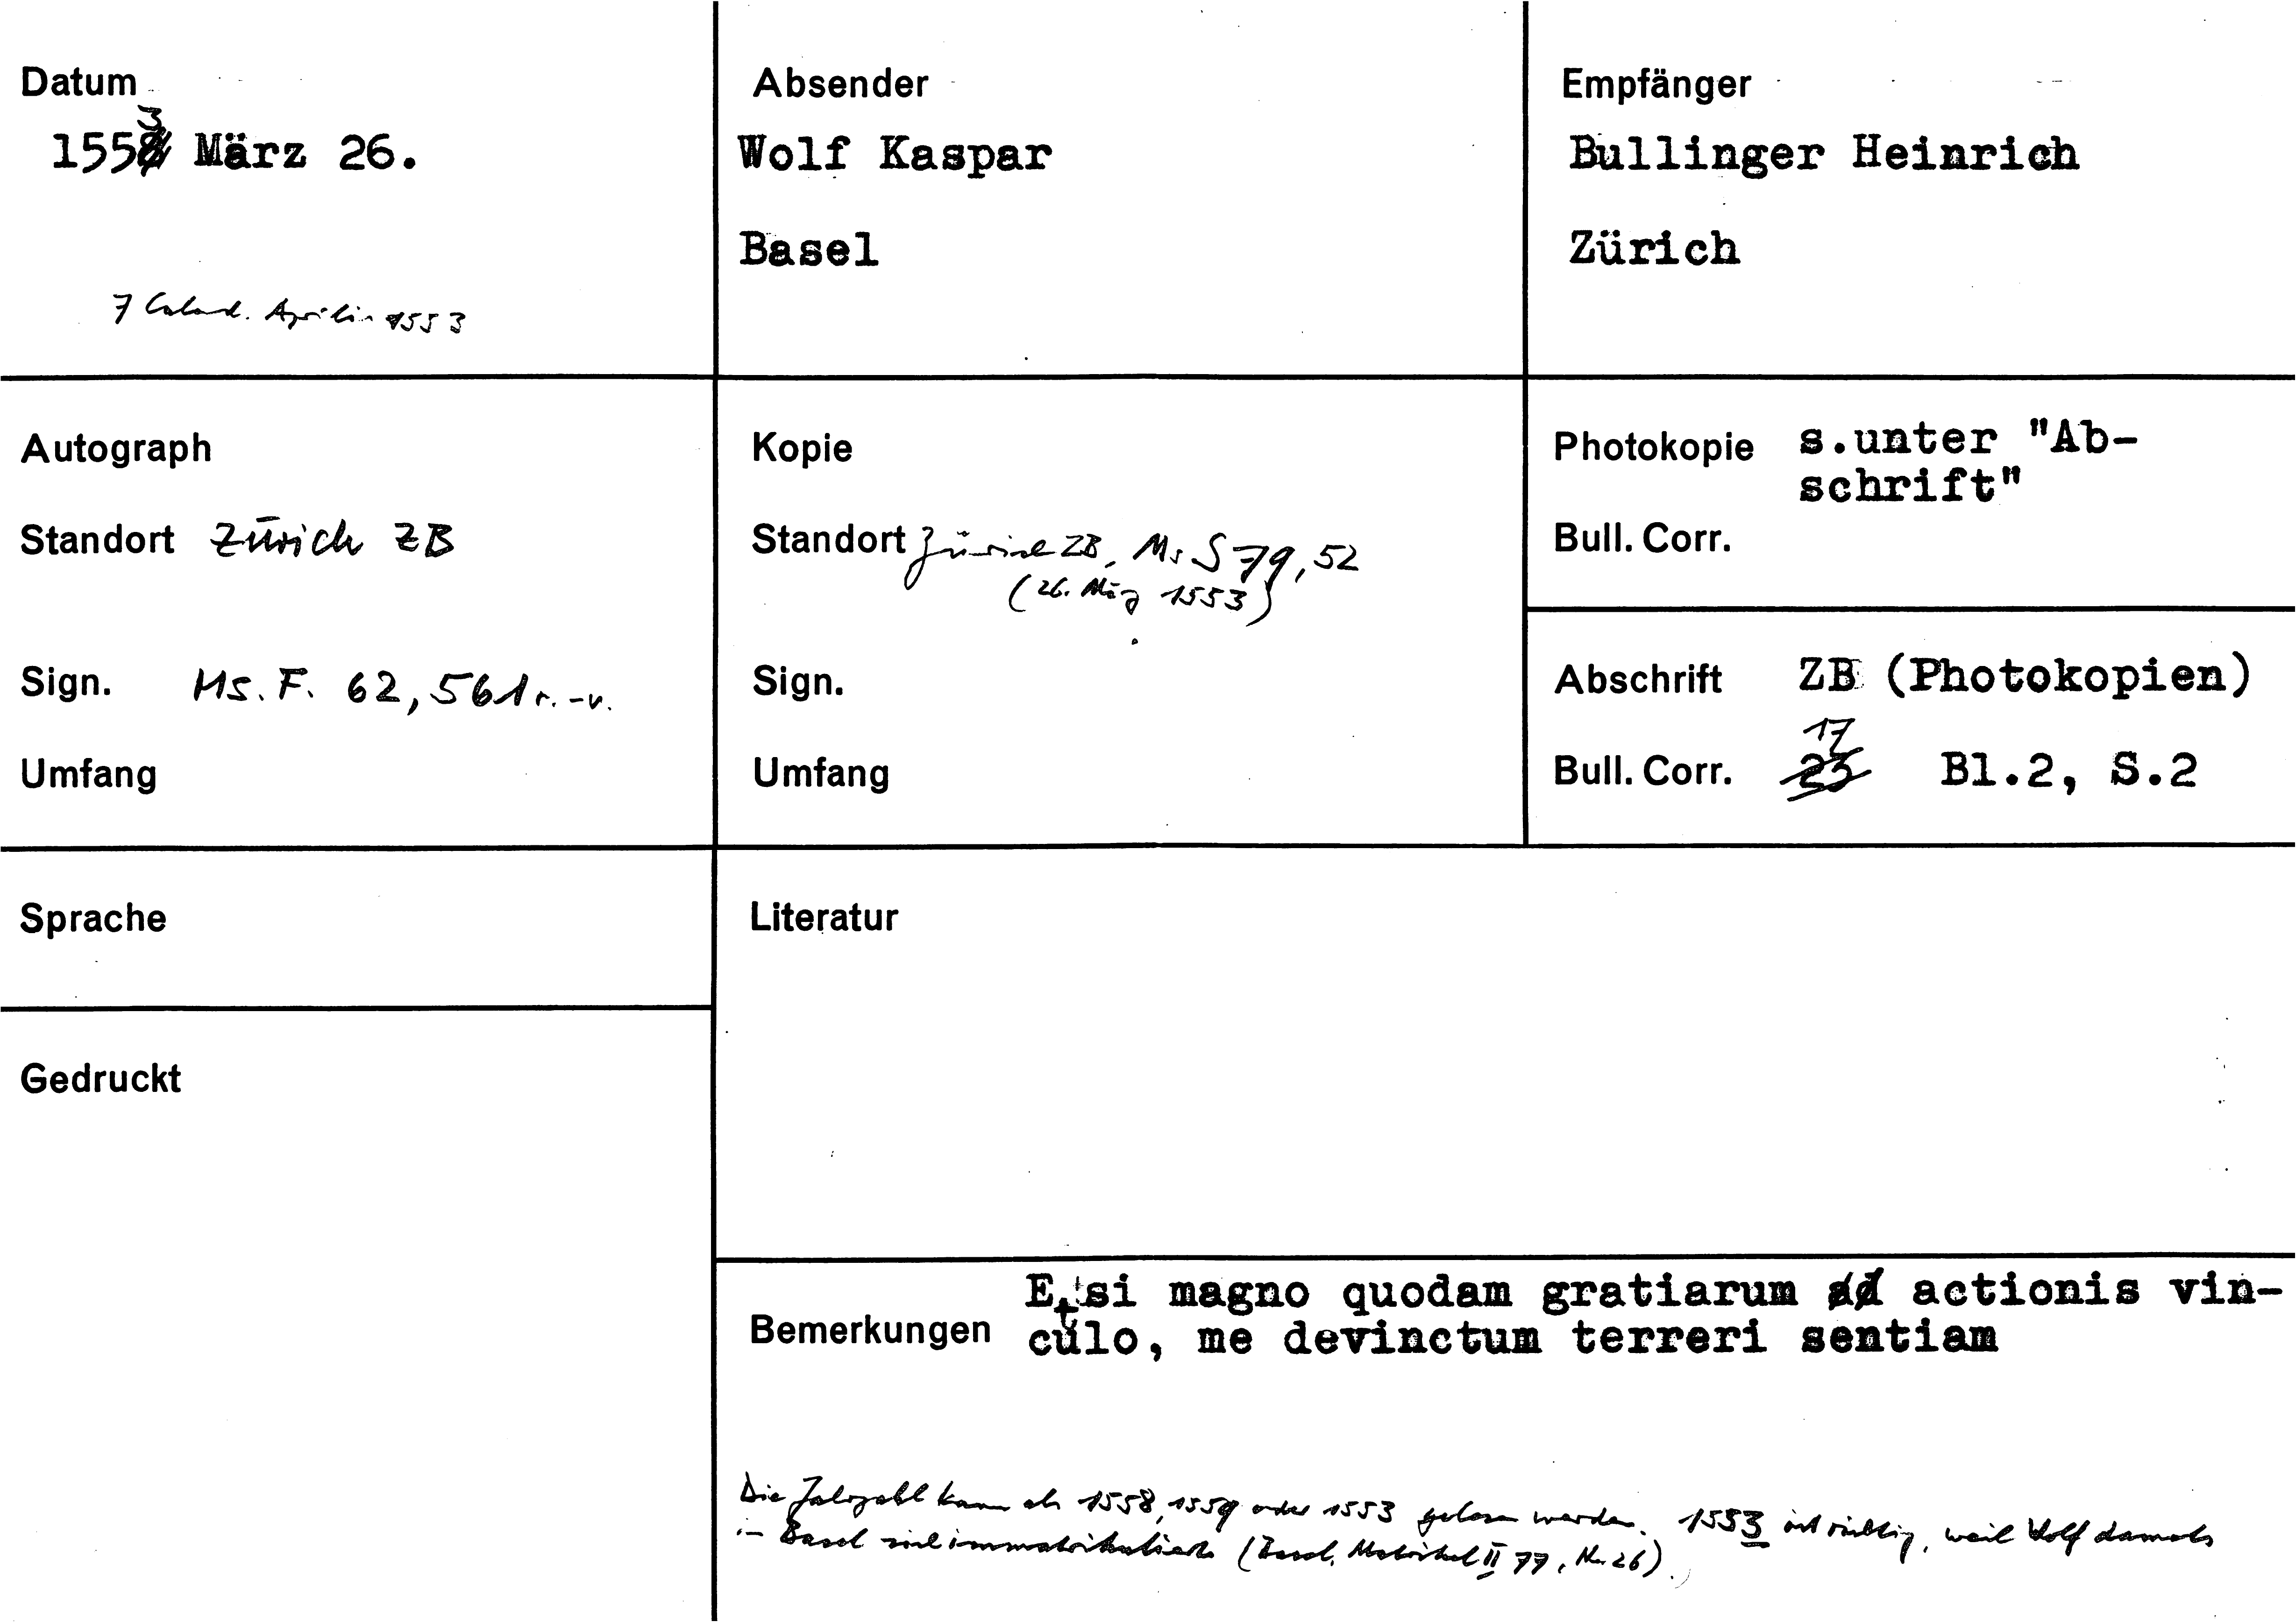 Datum
1553 März 26.
7 Calend. Aprilis 1553
Absender
Wolf Kaspar
Basel
Empfänger
Bullinger Heinrich
Zürich
Autograph
Standort Zürich ZB
Sign. Ms. F. 62, 561 r.-v.
Umfang
Kopie
Standort Zürich ZB, Ms S 79, 52
(26. März 1553)
Sign.
Umfang
Photokopie s.unter "Ab-
schrift"
Bull. Corr.
Abschrift ZB (Photokopien)
17
Bull. Corr. 23 Bl.2, S.2
Sprache
Gedruckt
Literatur
Bemerkungen
Etsi magno quodam gratiarum actionis vin-
culo, me devinctum terreri sentiam
Die Jahrzahl kann als 1558, 1559 oder 1553 gelesen werden. 1553 ist richtig, weil Wolf damals
in Basel sich immatrikulierte (Basel, Matrikel II 77, Nr. 26).